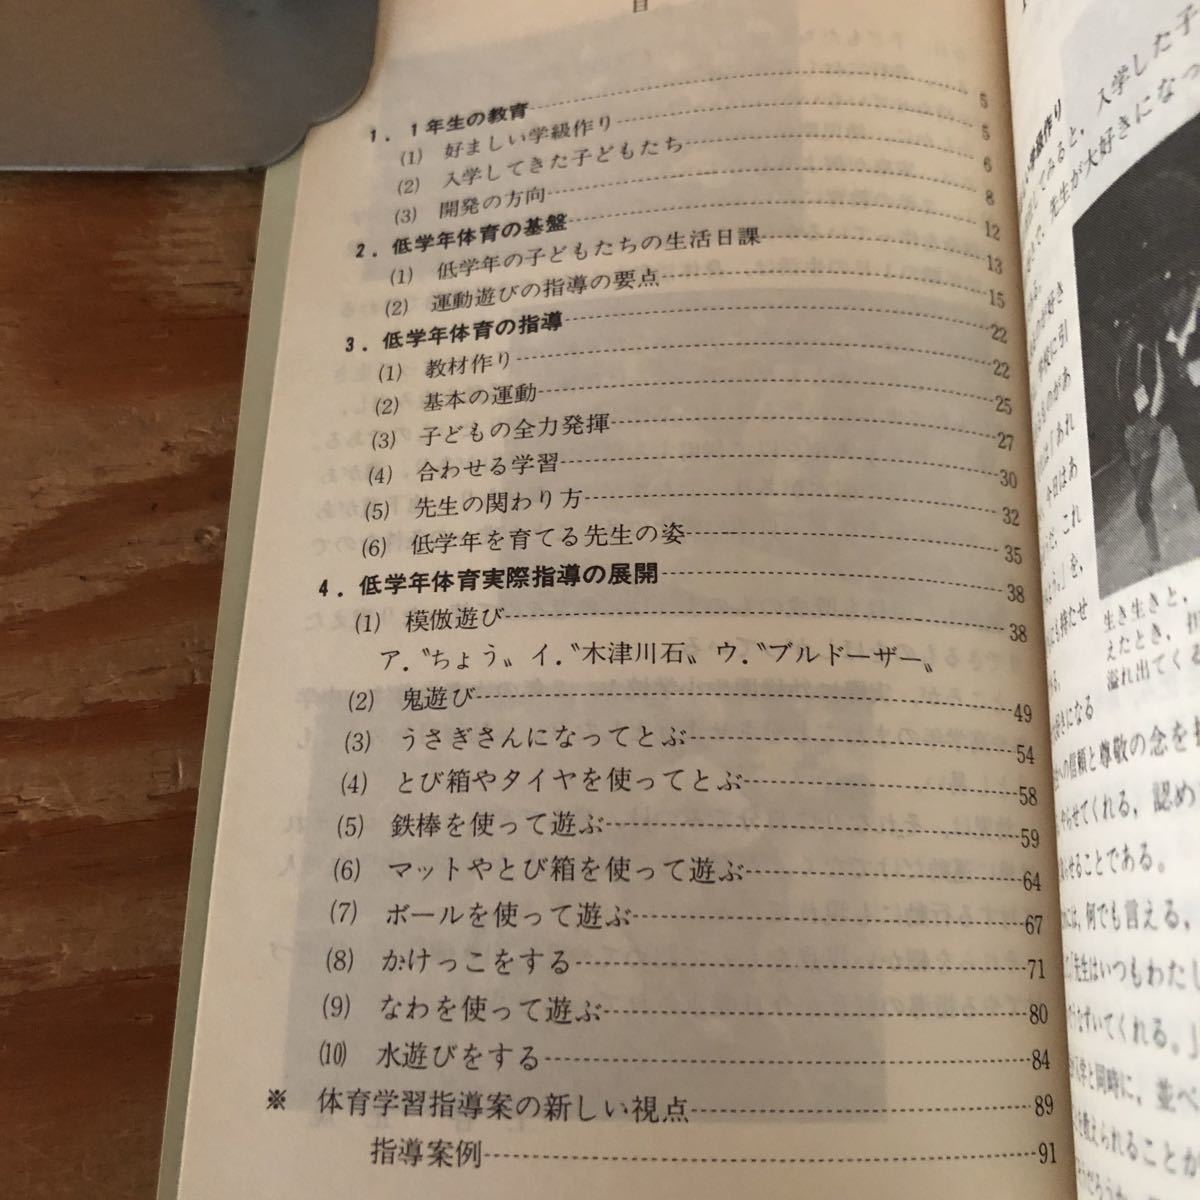 目
1．1年生の教育 5
(1) 好ましい学級作り 5
(2) 入学してきた子どもたち 6
(3) 開発の方向 8
2．低学年体育の基盤 12
(1) 低学年の子どもたちの生活日課 13
(2) 運動遊びの指導の要点 15
3．低学年体育の指導 22
(1) 教材作り 22
(2) 基本の運動 25
(3) 子どもの全力発揮 27
(4) 合わせる学習 30
(5) 先生の関わり方 32
(6) 低学年を育てる先生の姿 35
4．低学年体育実際指導の展開 38
(1) 模倣遊び 38
ア．〝ちょう〟 イ．〝木津川石〟 ウ．〝ブルドーザー〟
(2) 鬼遊び 49
(3) うさぎさんになってとぶ 54
(4) とび箱やタイヤを使ってとぶ 58
(5) 鉄棒を使って遊ぶ 59
(6) マットやとび箱を使って遊ぶ 64
(7) ボールを使って遊ぶ 67
(8) かけっこをする 71
(9) なわを使って遊ぶ 80
(10) 水遊びをする 84
※ 体育学習指導案の新しい視点 89
指導案例 91
学級作り
入学した子
してみると、
先生が大好きになっ
が好き
学校に引
るものがあ
は「あれ
今日はあ
だ、これ
よう。」を、
にも持たせ
る。
生き生きと，
えたとき，
溢れ出てくる
好きになる
への信頼と尊敬の念を
やらせてくれる，認め
らせることである。
には，何でも言える，
「先生はいつもわたし
うなずいてくれる。」
入学と同時に，並べ
を教えられることが